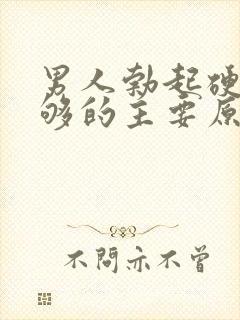 男人勃起硬
够的主要原
不問亦不曾